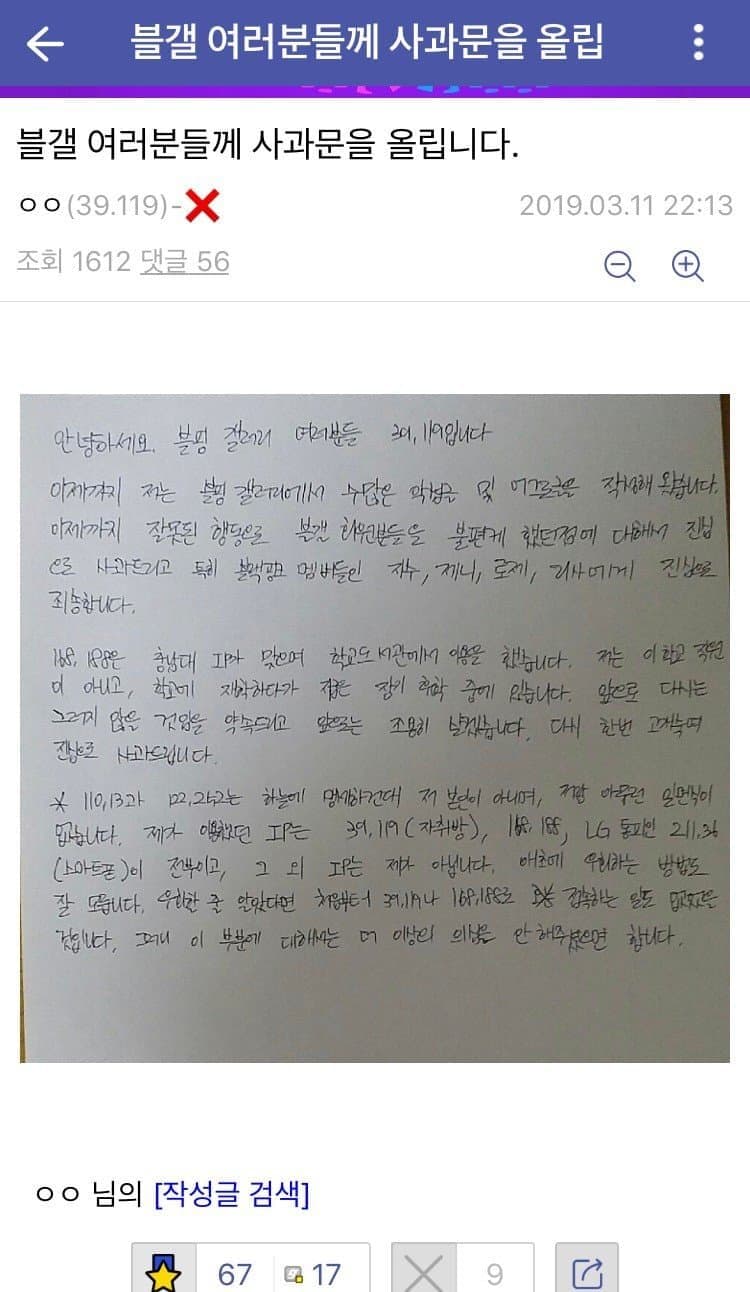 블갤 여러분들께 사과문을 올립
블갤 여러분들께 사과문을 올립니다.
ㅇㅇ(39.119)-❌
2019.03.11 22:13
조회 1612 댓글 56
안녕하세요. 블핑 갤러리 여러분들 39.119입니다
이제까지 저는 블핑갤러리에서 수많은 악성글 및 어그로글을 작성해 왔습니다.
이제까지 잘못된 행동으로 블갤 회원분들을 불편케 했던점에 대해서 진심
으로 사과드리고 특히 블랙핑크 멤버들인 지수, 제니, 로제, 리사에게 진심으로
죄송합니다.
168.188은 충남대 IP가 맞으며 학교도서관에서 이용을 했습니다. 저는 이학교 직원
이 아니고, 학교에 재학하다가 지금은 장기 휴학 중에 있습니다. 앞으로 다시는
그러지 않을 것임을 약속드리고 앞으로는 조용히 살겠습니다. 다시 한번 고개숙여
진심으로 사과드립니다.
* 110.13과 122.252는 하늘에 맹세하건대 저 본인이 아니며, 저랑 아무런 일면식이
없습니다. 제가 이용했던 IP는 39.119(자취방), 168.188, LG 통피인 211.36
(스마트폰)이 전부이고, 그 외 IP는 제가 아닙니다. 애초에 우회하는 방법도
잘 모릅니다. 우회할 줄 알았다면 처음부터 39.119나 168.188로 접속하는 일도 없었을
것입니다. 그러니 이 부분에 대해서는 더 이상의 의심을 안 해주셨으면 합니다.
ㅇㅇ 님의 [작성글 검색]
67 17 9